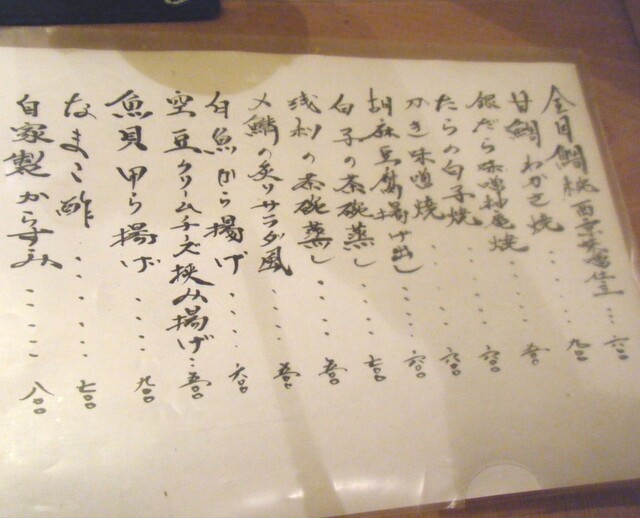 金目鯛桃西京焼仕立…六〇〇
甘鯛わかさ焼……九〇〇
銀だら味噌幽庵焼……六〇〇
たらの白子焼……六〇〇
かき味噌焼……六〇〇
胡麻豆腐揚げ出し……七〇〇
白子の茶碗蒸し……五〇〇
浅利の茶碗蒸し……五〇〇
〆鯖の炙りサラダ風……五〇〇
白魚から揚げ……六〇〇
空豆クリームチーズ挟み揚げ…五〇〇
魚貝甲ら揚げ……九〇〇
なまこ酢……七〇〇
自家製からすみ……八〇〇